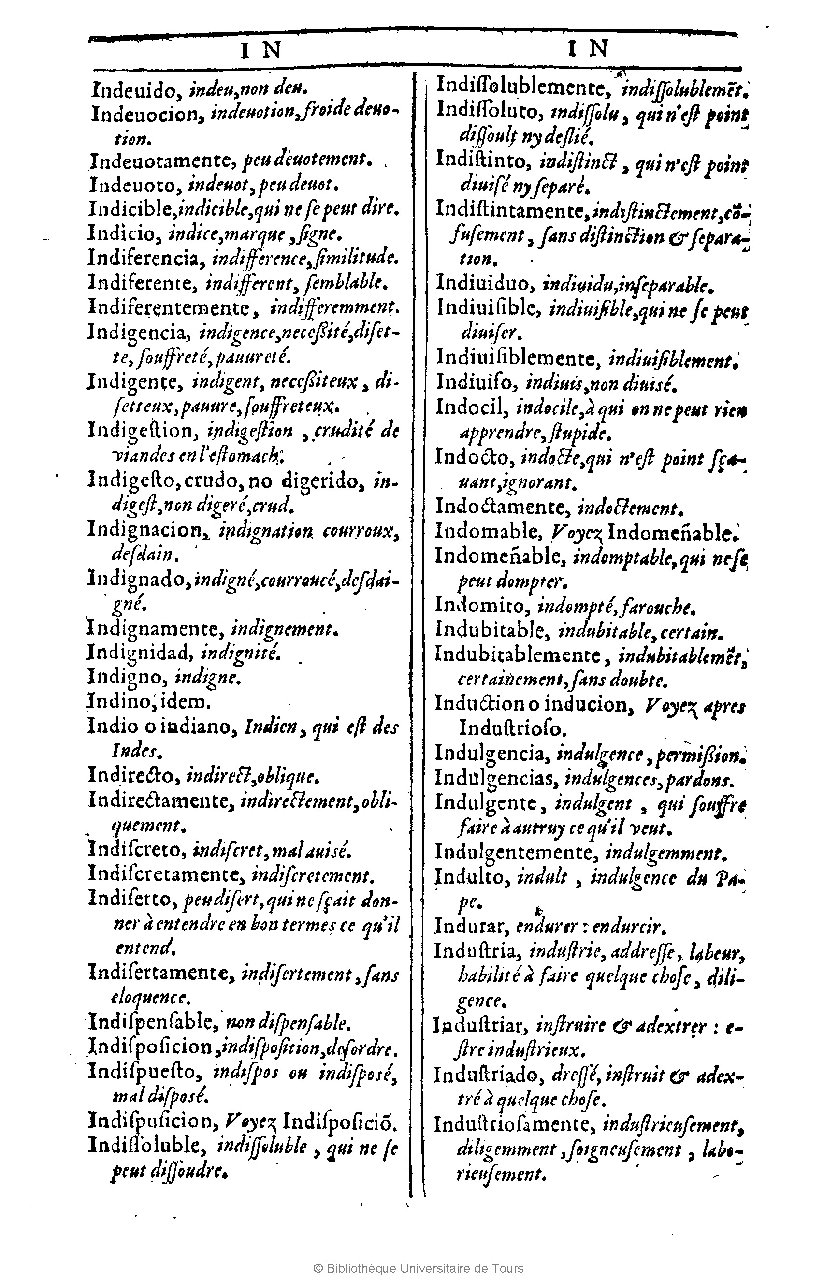 I N
I N
Indeuido, indeu, non deu.
Indeuocion, indeuotion, froide deuo-
tion.
Indeuotamente, peu deuotement.
Indeuoto, indeuot, peu deuot.
Indicible, indicible, qui ne se peut dire.
Indicio, indice, marque, signe.
Indiferencia, indifference, similitude.
Indiferente, indifferent, semblable.
Indiferentemente, indifferemment.
Indigencia, indigence, necessité, diset-
te, souffreté, pauureté.
Indigente, indigent, necessiteux, di-
setteux, pauure, souffreteux.
Indigestion, indigestion, crudité de
viandes en l'estomach.
Indigesto, crudo, no digerido, in-
digest, non digeré, crud.
Indignacion, indignation courroux,
desdain.
Indignado, indigné, courroucé, desdai-
gné.
Indignamente, indignement.
Indignidad, indignité.
Indigno, indigne.
Indino, idem.
Indio o indiano, Indien, qui est des
Indes.
Indirecto, indirect, oblique.
Indirectamente, indirectement, obli-
quement.
Indiscreto, indiscret, mal auisé.
Indiscretamente, indiscretement.
Indiserto, peu disert, qui ne sçait don-
ner à entendre en bon termes ce qu'il
entend.
Indisertamente, indisertement, sans
eloquence.
Indispensable, non dispensable.
Indisposicion, indisposition, desordre.
Indispuesto, indispos ou indisposé,
mal disposé.
Indispusicion, Voyez Indisposiciō.
Indissoluble, indissoluble, qui ne se
peut dissoudre.
Indissolublemente, indissolublemēt.
Indissoluto, indissolu, qui n'est point
dissoult ny deslié.
Indistinto, indistinct, qui n'est point
diuisé ny separé.
Indistintamente, indistinctement, cō-
fusement, sans distinction & separa-
tion.
Indiuiduo, indiuidu, inseparable.
Indiuisible, indiuisible, qui ne se peut
diuiser.
Indiuisiblemente, indiuisiblement.
Indiuiso, indiuis, non diuisé.
Indocil, indocile, à qui on ne peut rien
apprendre, stupide.
Indocto, indocte, qui n'est point sça-
uant, ignorant.
Indoctamente, indoctement.
Indomable, Voyez Indomeñable.
Indomeñable, indomptable, qui ne se
peut dompter.
Indomito, indompté, farouche.
Indubitable, indubitable, certain.
Indubitablemente, indubitablemēt,
certainement, sans doubte.
Induction o inducion, Voyez apres
Industrioso.
Indulgencia, indulgence, permission.
Indulgencias, indulgences, pardons.
Indulgente, indulgent, qui souffre
faire à autruy ce qu'il veut.
Indulgentemente, indulgemment.
Indulto, indult, indulgence du Pa-
pe.
Indurar, endurer : endurcir.
Industria, industrie, addresse, labeur,
habilité à faire quelque chose, dili-
gence.
Industriar, instruire & adextrer : e-
stre industrieux.
Industriado, dressé, instruit & adex-
tré à quelque chose.
Industriosamente, industrieusement,
diligemment, soigneusement, labo-
rieusement.
© Bibliothèque Universitaire de Tours